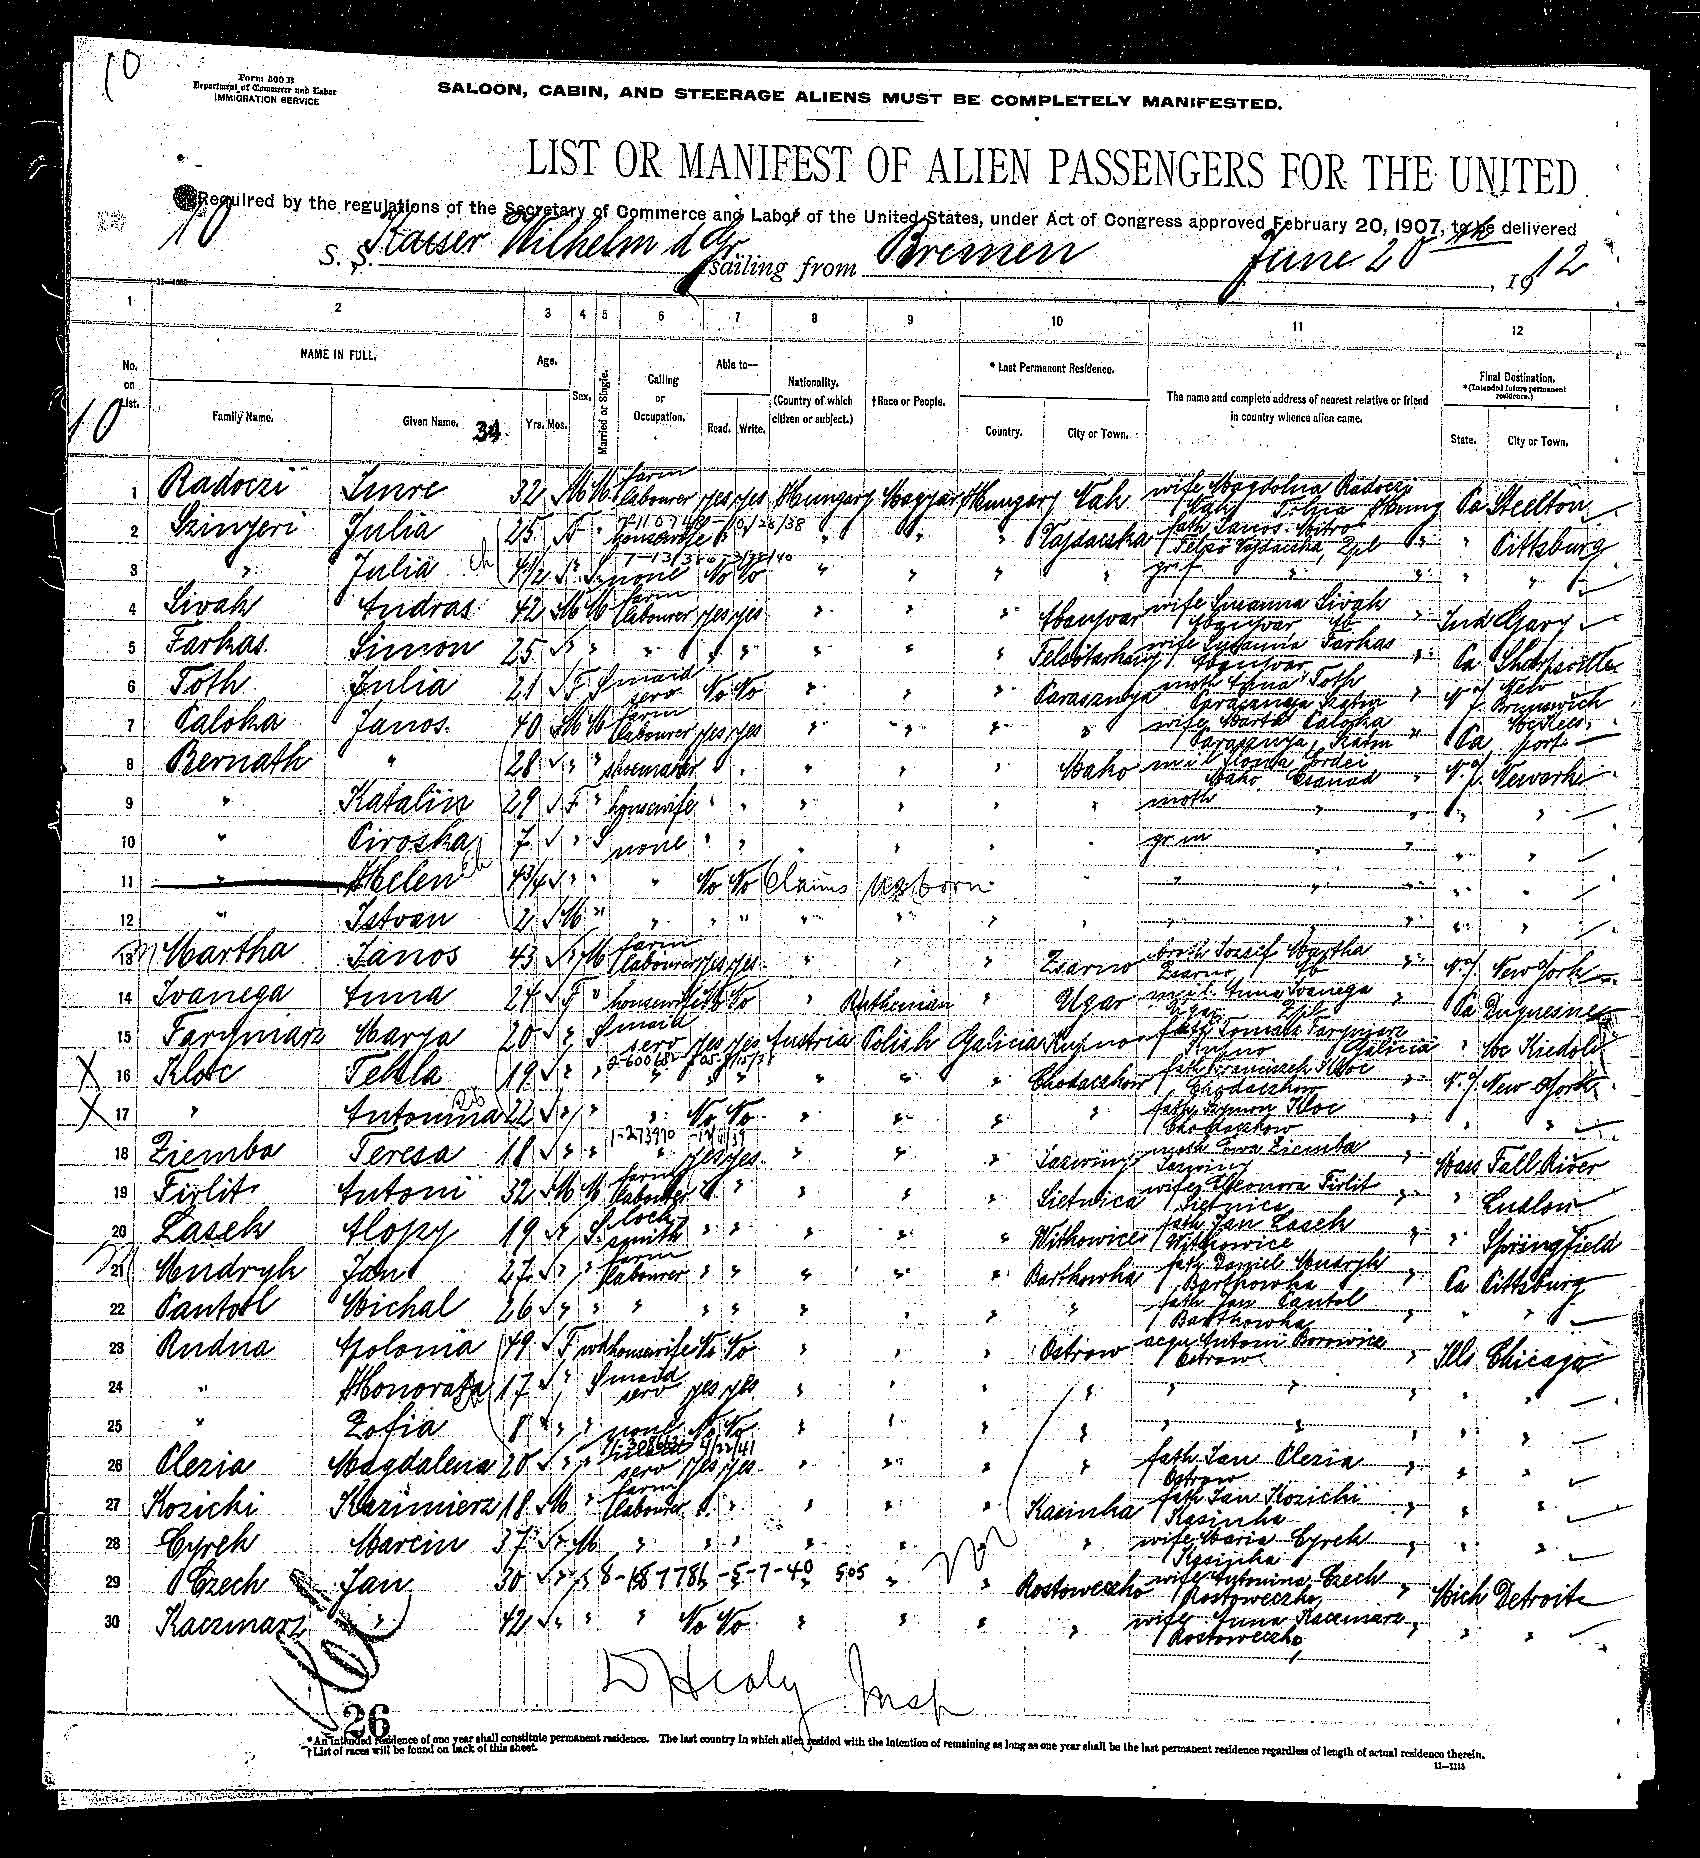 10
Form 500 B
Department of Commerce and Labor
IMMIGRATION SERVICE
SALOON, CABIN, AND STEERAGE ALIENS MUST BE COMPLETELY MANIFESTED.
LIST OR MANIFEST OF ALIEN PASSENGERS FOR THE UNITED
Required by the regulations of the Secretary of Commerce and Labor of the United States, under Act of Congress approved February 20, 1907, to be delivered
10
S. S. Kaiser Wilhelm d Gr sailing from Bremen June 20th, 1912
1 2 3 4 5 6 7 8 9 10 11 12
No. on List.
NAME IN FULL.
Family Name. Given Name. 34
Age. Yrs. Mos.
Sex.
Married or Single.
Calling or Occupation.
Able to— Read. Write.
Nationality. (Country of which citizen or subject.)
†Race or People.
* Last Permanent Residence.
Country. City or Town.
The name and complete address of nearest relative or friend in country whence alien came.
Final Destination.
*(Intended future permanent residence.)
State. City or Town.
10
1 Radoczi Imre 32 M M farm labourer yes yes Hungary Magyar Hungary Nak wife Magdolna Radoczi Nak Tolna Hung Pa Steelton
2 Szinyeri Julia 25 F " housewife " " " " " Kajdacska fath Janos Mitro Felso Kajdacska, Zpl " " Pittsburg
3 " Julia ch 4½ " S none No No " " " " " " " "
4 Sivak Andras 42 M M farm labourer yes yes " " " Abaujvar wife Susanna Sivak Abaujvar " Ind Gary
5 Farkas Simon 25 " " " " " " " " wife Farkas Abaujvar " Pa Sharpsville
6 Toth Julia 21 F S maid serv No No " " " Parasznya moth Anna Toth " N.J. New Brunswick
7 Paloka Janos 40 M M farm labourer yes yes " " " " wife Paloka Parasznya " Pa McKees port
8 Bernath " 28 " " shoemaker " " " " " Mako Mako Csanad " N.J. Newark
9 " Katalin 29 F " housewife " " " " " " moth " " " "
10 " Piroska 7 " S none " " " " " " gr m " " " "
11 " Helen 4 3/4 " " " No No Claims US born " " " "
12 " Istvan 2 M " " " " " " " " " " " "
13 Martha Janos 43 " M farm labourer yes yes " " " Zsarno broth Jozsef Martha Zsarno " N.Y. New York
14 Ivanega Anna 24 F " housewife No No " Ruthenian " Ugar m i l Anna Ivanega Zpl " Pa Duquesne
15 Farymarz Marya 20 " S maid serv yes yes Austria Polish Galicia fath Tomasz Farymarz Galicia "
16 Kloc Tekla 19 " " " " " " " " Chodaczkow fath Franciszek Kloc Chodaczkow " N.Y. New York
17 " Antonina 22 " " " No No " " " " fath Kloc Chodaczkow " " "
18 Ziemba Teresa 18 " " 1-273970 yes yes " " " moth Ewa Ziemba " Mass Fall River
19 Firlit Antoni 32 M M farm labourer " " " " " Sietnica wife Eleonora Firlit Sietnica " " Ludlow
20 Lasek Alopy 19 " S lock smith " " " " " Witkowice fath Jan Lasek Witkowice " " Springfield
21 Mudryk Jan 27 " " farm labourer " " " " " Bartkowka fath Daniel Mudryk Bartkowka " Pa Pittsburg
22 Pantol Michal 26 " " " " " " " " " " fath Jan Pantol Bartkowka " " "
23 Rudna Apolonia 49 F wd housewife No No " " " Ostrow Antoni Borowice Ostrow " Ills Chicago
24 " Honorata 17 " S maid serv yes yes " " " " " " " " "
25 " Zofia 8 " " none No No " " " " " " " " "
26 Olezia Magdalena 20 " " serv yes yes " " " " fath Jan Olezia Ostrow " " "
27 Kozicki Kazimierz 18 M " farm labourer " " " " " Kasinka fath Jan Kozicki Kasinka " " "
28 Cyrek Marcin 37 " M " " " " " " " wife Maria Cyrek Kasinka " " "
29 Czech Jan 30 " " 8-187786 -5-7-40 505 " " Rostoweczko wife Antonina Czech Rostoweczko " Mich Detroit
30 Kaczmarz " 42 " " " No No " " " " wife Anna Kaczmarz Rostoweczko " " "
D Healy Insp
26
*An intended residence of one year shall constitute permanent residence. The last country in which alien resided with the intention of remaining as long as one year shall be the last permanent residence regardless of length of actual residence therein.
†List of races will be found on back of this sheet.
11—1113